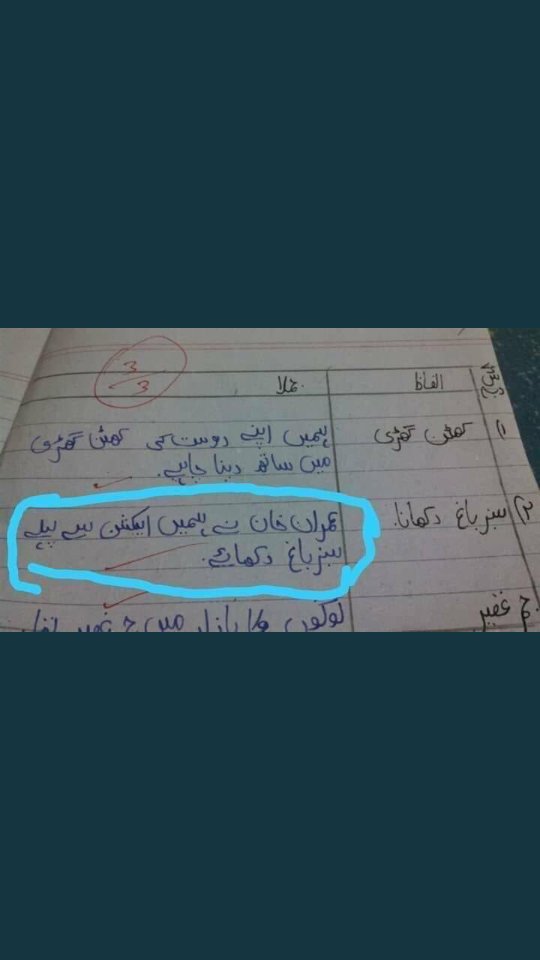 3/3
الفاظ جملا
۱) کھٹن گھڑی ہمیں اپنے دوست کی کھٹن گھڑی
میں ساتھ دینا چاہیے۔
۲) سبز باغ دکھانا۔ عمران خان نے ہمیں الیکشن سے پہلے
سبز باغ دکھائے۔
جم غفیر لوگوں کا بازار میں جم غفیر تھا۔